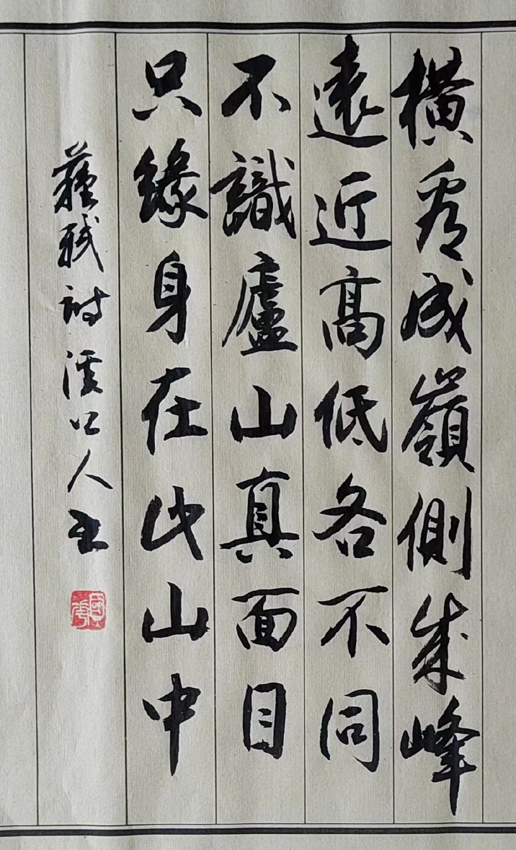 橫看成嶺側成峰
遠近高低各不同
不識廬山真面目
只緣身在此山中
蘇軾詩 溪口人書